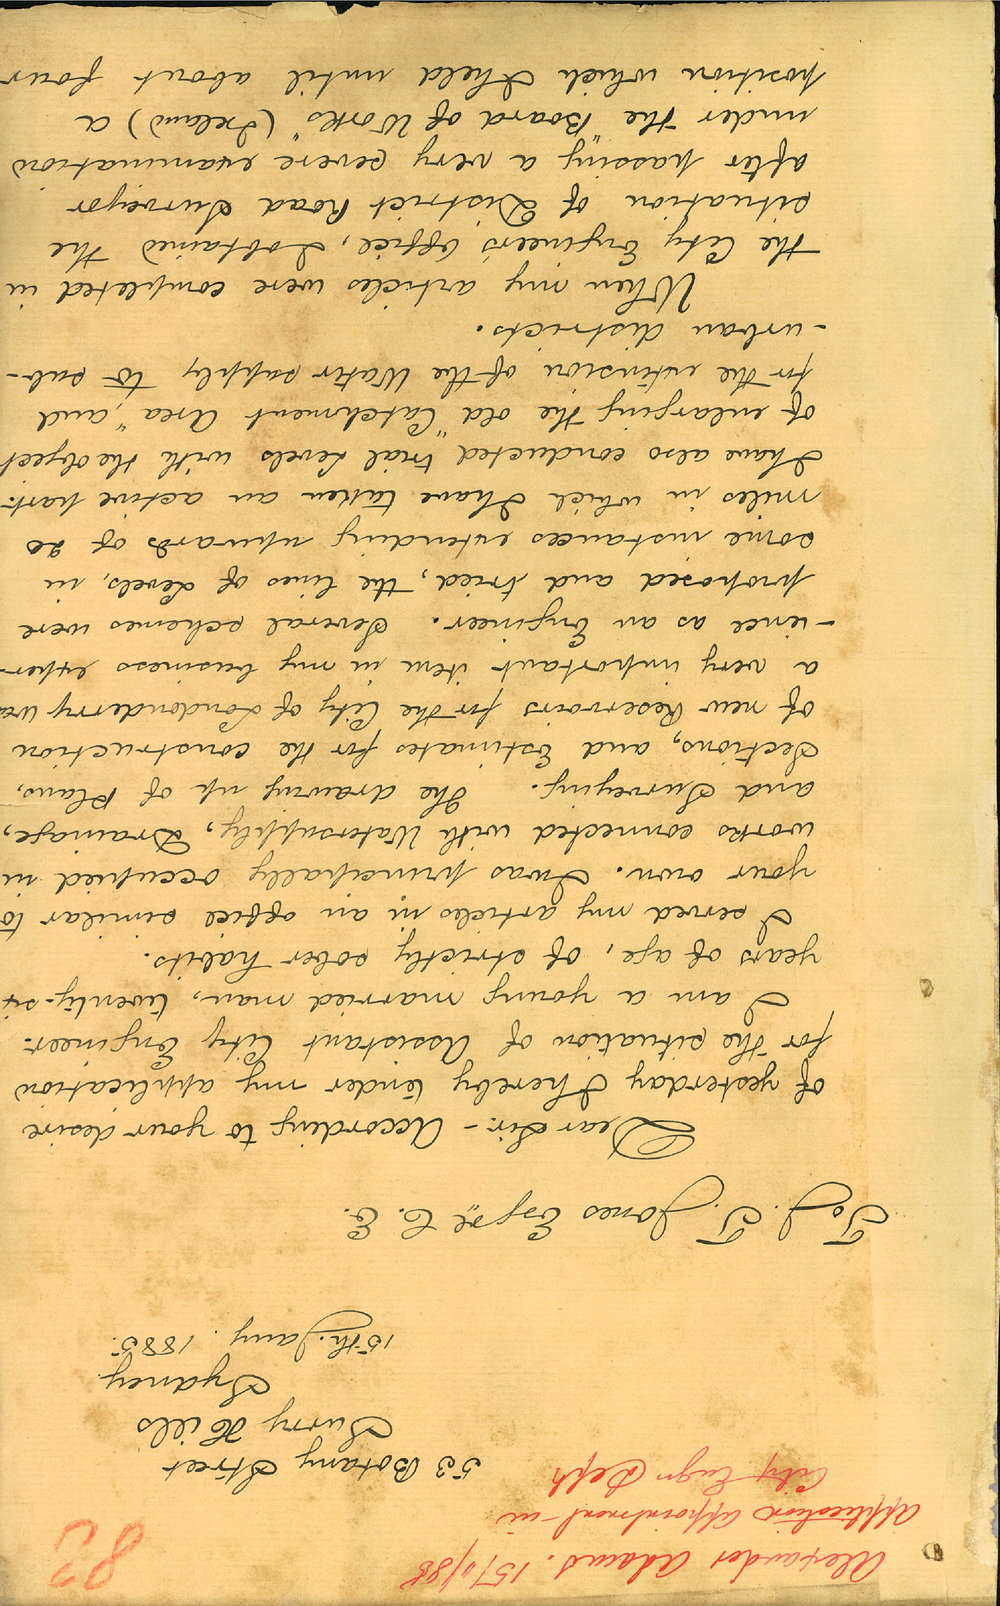 Alexander Adams. 15/1/85
Application appointment in
City Engrs Dept
83
53 Botany Street
Surry Hills
Sydney
15th. Jany. 1885.
To J. T. Jones Esqre C. E.
Dear Sir:- According to your desire
of yesterday I hereby tender my application
for the situation of Assistant City Engineer.
I am a young married man, twenty-six
years of age, of strictly sober habits.
I served my articles in an office similar to
your own. I was principally occupied in
works connected with Watersupply, Drainage,
and Surveying. The drawing up of Plans,
Sections, and Estimates for the construction
of new Reservoirs for the City of Londonderry was
a very important item in my business exper-
-ience as an Engineer. Several schemes were
proposed and tried, the lines of Levels, in
some instances extending upwards of 20
miles in which I have taken an active part.
I have also conducted trial Levels with the object
of enlarging the old "Catchment Area" and
for the extension of the Water supply to sub-
-urban districts.
When my articles were completed in
the City Engineer's Office, I obtained the
situation of District Road Surveyor
after passing a very severe examination
under the "Board of Works" (Ireland) a
position which I held until about four